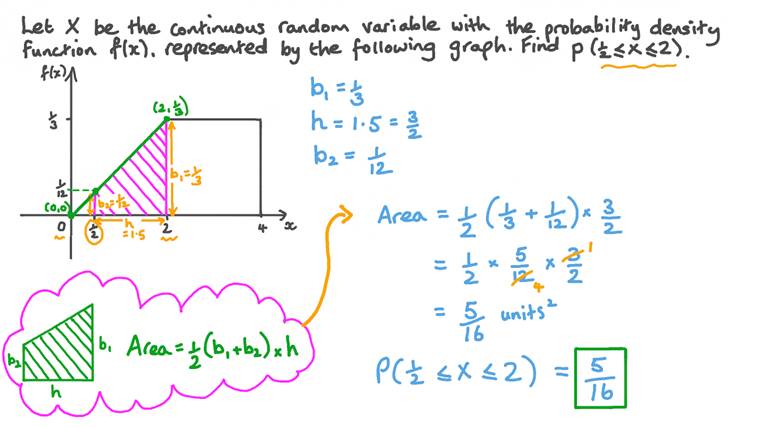 Let X be the continuous random variable with the probability density
function f(x), represented by the following graph. Find p(½≤x≤2).
f(x)
(2,⅓)
⅓
1/12
(0,0)
b₂=1/12
b₁=⅓
h
=1.5
0
½
2
4
x
b₁=⅓
h = 1.5 = 3/2
b₂ = 1/12
Area = ½ (⅓ + 1/12) × 3/2
= ½ × 5/12 × 3/2
4
1
= 5/16 units²
P(½ ≤ X ≤ 2) = 5/16
b₂
b₁
h
Area = ½(b₁+b₂)×h